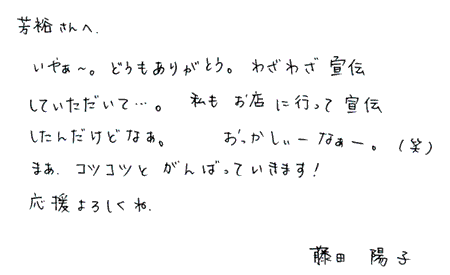 芳裕さんへ.
いやぁ～。どうもありがとう。わざわざ宣伝
していただいて…。 私も お店に行って宣伝
したんだけどなぁ。 おっかしぃーなぁー。(笑)
まぁ.コツコツと がんばっていきます!
応援よろしくね.
藤田 陽子